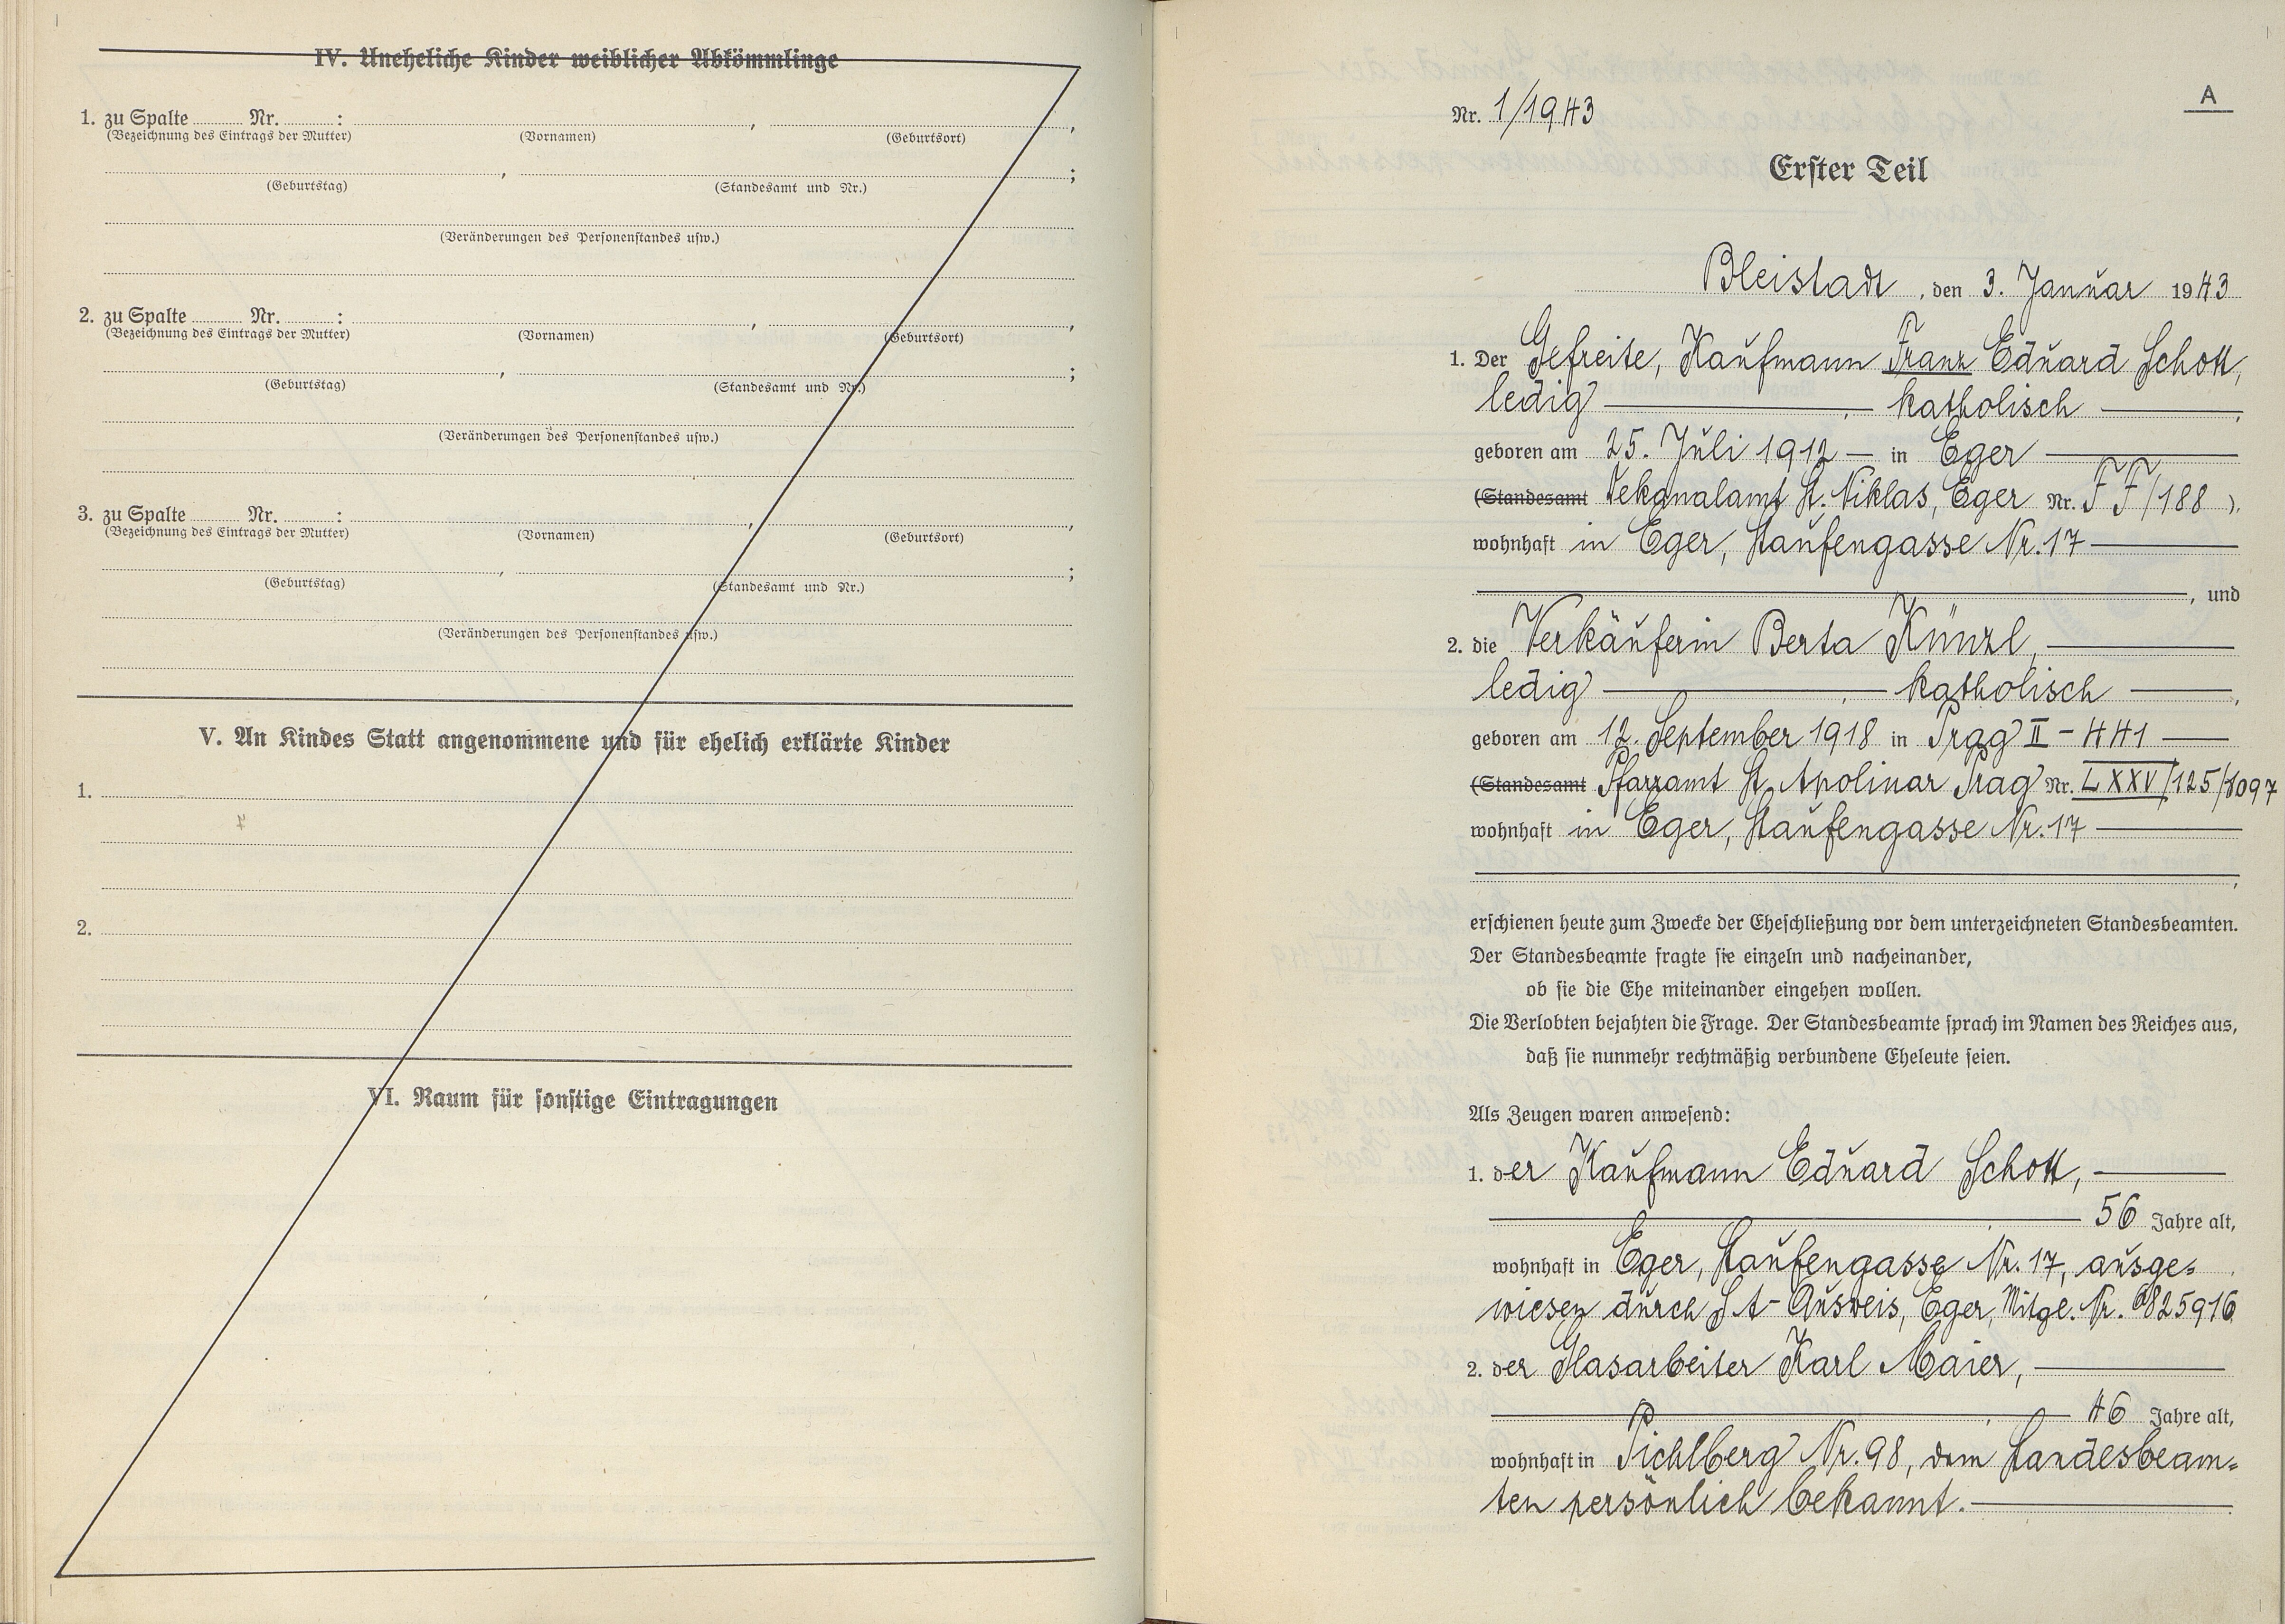 IV. Uneheliche Kinder weiblicher Abkömmlinge
1. zu Spalte Nr. : , ,
(Bezeichnung des Eintrags der Mutter) (Vornamen) (Geburtsort)
, ;
(Geburtstag) (Standesamt und Nr.)
(Veränderungen des Personenstandes usw.)
2. zu Spalte Nr. : , ,
(Bezeichnung des Eintrags der Mutter) (Vornamen) (Geburtsort)
, ;
(Geburtstag) (Standesamt und Nr.)
(Veränderungen des Personenstandes usw.)
3. zu Spalte Nr. : , ,
(Bezeichnung des Eintrags der Mutter) (Vornamen) (Geburtsort)
, ;
(Geburtstag) (Standesamt und Nr.)
(Veränderungen des Personenstandes usw.)
V. An Kindes Statt angenommene und für ehelich erklärte Kinder
1.
2.
VI. Raum für sonstige Eintragungen
A
Nr. 1/1943
Erster Teil
Bleistadt, den 3. Januar 1943
1. Der Gefreite, Kaufmann Franz Eduard Schott,
ledig , katholisch ,
geboren am 25. Juli 1912 — in Eger
(Standesamt Dekanalamt St. Niklas, Eger Nr. F F/188 ).
wohnhaft in Eger, Staufengasse Nr. 17
, und
2. die Verkäuferin Berta Künzl,
ledig , katholisch ,
geboren am 12. September 1918 in Prag II – 441
(Standesamt Pfarramt St. Apolinar Prag Nr. LXXV/125/1097
wohnhaft in Eger, Staufengasse Nr. 17
,
erschienen heute zum Zwecke der Eheschließung vor dem unterzeichneten Standesbeamten.
Der Standesbeamte fragte sie einzeln und nacheinander,
ob sie die Ehe miteinander eingehen wollen.
Die Verlobten bejahten die Frage. Der Standesbeamte sprach im Namen des Reiches aus,
daß sie nunmehr rechtmäßig verbundene Eheleute seien.
Als Zeugen waren anwesend:
1. der Kaufmann Eduard Schott,
56 Jahre alt,
wohnhaft in Eger, Staufengasse Nr. 17, ausge=
wiesen durch SA-Ausweis, Eger, Mitgl. Nr. 6825916
2. der Glasarbeiter Karl Maier,
46 Jahre alt,
wohnhaft in Pichlberg Nr. 98, dem Standesbeam=
ten persönlich bekannt.